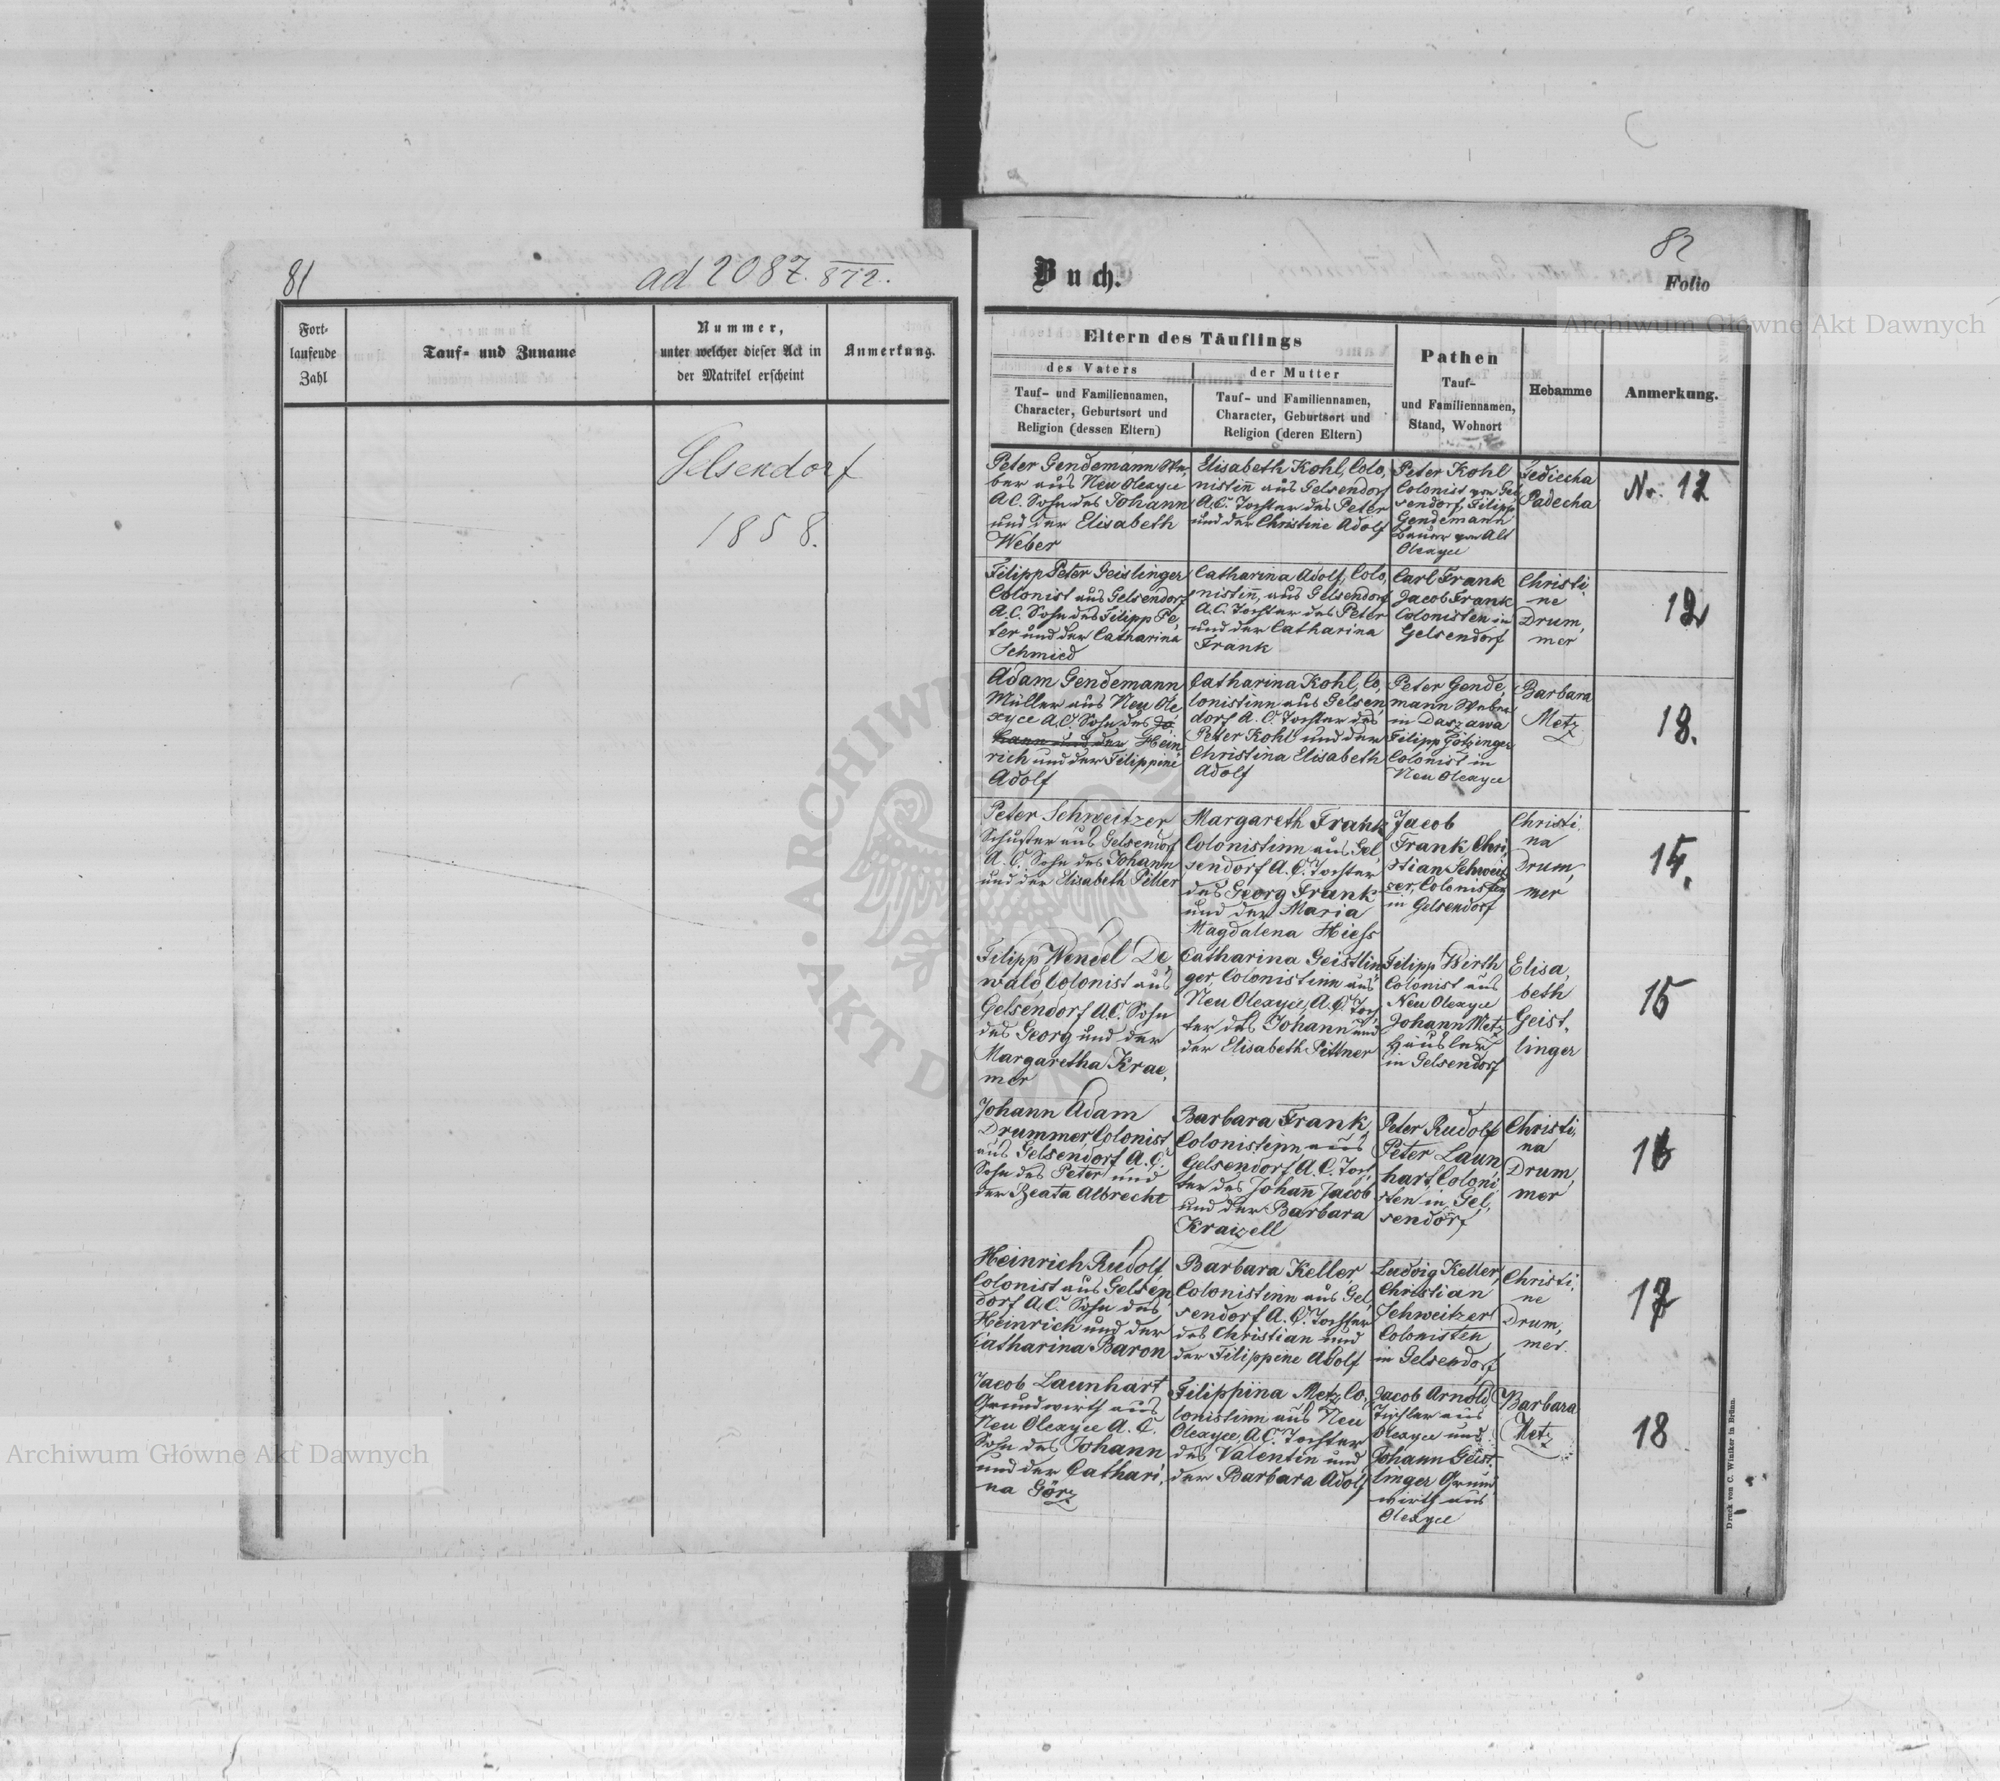 81
ad 2087. 872.
Fort-
laufende
Zahl
Tauf- und Zuname
Nummer,
unter welcher dieser Act in
der Matrikel erscheint
Anmerkung.
Gelsendorf
1858.
82
Buch.
Folio
Eltern des Täuflings
des Vaters
Tauf- und Familiennamen,
Character, Geburtsort und
Religion (dessen Eltern)
der Mutter
Tauf- und Familiennamen,
Character, Geburtsort und
Religion (deren Eltern)
Pathen
Tauf-
und Familiennamen,
Stand, Wohnort
Hebamme
Anmerkung.
Peter Gendemann We,
ber aus Neu Olexyce
A.C. Sohn des Johann
und der Elisabeth
Weber
Elisabeth Kohl, Colo,
nistin̄ aus Gelsendorf
A.C. Tochter des Peter
und der Christine Adolf
Peter Kohl
Colonist von Gel
sendorf, Filipp
Gendemann
Bauer von Alt
Olexyce
Fediecha
Padecha
Nr. 12
Filipp Peter Geislinger
Colonist aus Gelsendorf
A.C. Sohn des Filipp Pe,
ter und der Catharina
Schmied
Catharina Adolf, Colo,
nistin̄, aus Gelsendorf
A.C. Tochter des Peter
und der Catharina
Frank
Carl Frank
Jacob Frank
Colonisten in
Gelsendorf
Christi,
ne
Drum,
mer
Adam Gendemann
Müller aus Neu Ole
xyce A.C. Sohn des Jo
hann und der Hein,
rich und der Filippine
Adolf
Catharina Kohl, Co,
lonistinn aus Gelsen,
dorf A.C. Tochter des
Peter Kohl und der
Christina Elisabeth
Adolf
Peter Gende,
mann Weber
in Daszawa
Filipp Götzinger
Colonist in
Neu Olexyce
Barbara
Metz
13.
Peter Schweitzer
Schuster aus Gelsendorf
A.C. Sohn des Johann
und der Elisabeth Pitter
Margareth Frank
Colonistinn aus Gel,
sendorf A.C. Tochter
des Georg Frank
und der Maria
Magdalena Hiess
Jacob
Frank Chri,
stian Schweit
zer, Colonisten
in Gelsendorf
Christi,
na
Drum,
mer
14.
Filipp Wendel De,
wald Colonist aus
Gelsendorf A.C. Sohn
des Georg und der
Margaretha Krae,
mer
Catharina Geistlin
ger, Colonistinn aus
Neu Olexyce, A.C. Toch,
ter des Johann und
der Elisabeth Pittner
Filipp Wirth
Colonist aus
Neu Olexyce
Johann Metz
Häusler
in Gelsendorf
Elisa,
beth
Geist,
linger
15
Johann Adam
Drummer, Colonist
aus Gelsendorf A.C.
Sohn des Peter und
der Beata Albrecht
Barbara Frank
Colonistinn aus
Gelsendorf, A.C. Toch,
ter des Johan̄ Jacob
und der Barbara
Kraizell
Peter Rudolf
Peter Laun,
hart, Coloni
sten in Gel,
sendorf
Christi,
na
Drum,
mer
16
Heinrich Rudolf
Colonist aus Gelsen,
dorf A.C. Sohn des
Heinrich und der
Catharina Baron
Barbara Keller
Colonistinn aus Gel,
sendorf A.C. Tochter
des Christian und
der Filippine Adolf
Ludwig Keller,
Christian
Schweitzer
Colonisten
in Gelsendorf
Christi,
ne
Drum,
mer.
17
Jacob Launhart
Grundwirth aus
Neu Olexyce A.C.
Sohn des Johann
und der Cathari,
na Görz
Filippina Metz, Co,
lonistinn aus Neu
Olexyce, A.C. Tochter
des Valentin und
der Barbara Adolf
Jacob Arnold
Tischler aus
Olexyce und
Johann Geist
linger Grund
wirth aus
Olexyce
Barbara
Metz
18
Druck von C. Winiker in Brünn.
Archiwum Główne Akt Dawnych
Archiwum Główne Akt Dawnych
ARCHIWUM
AKT